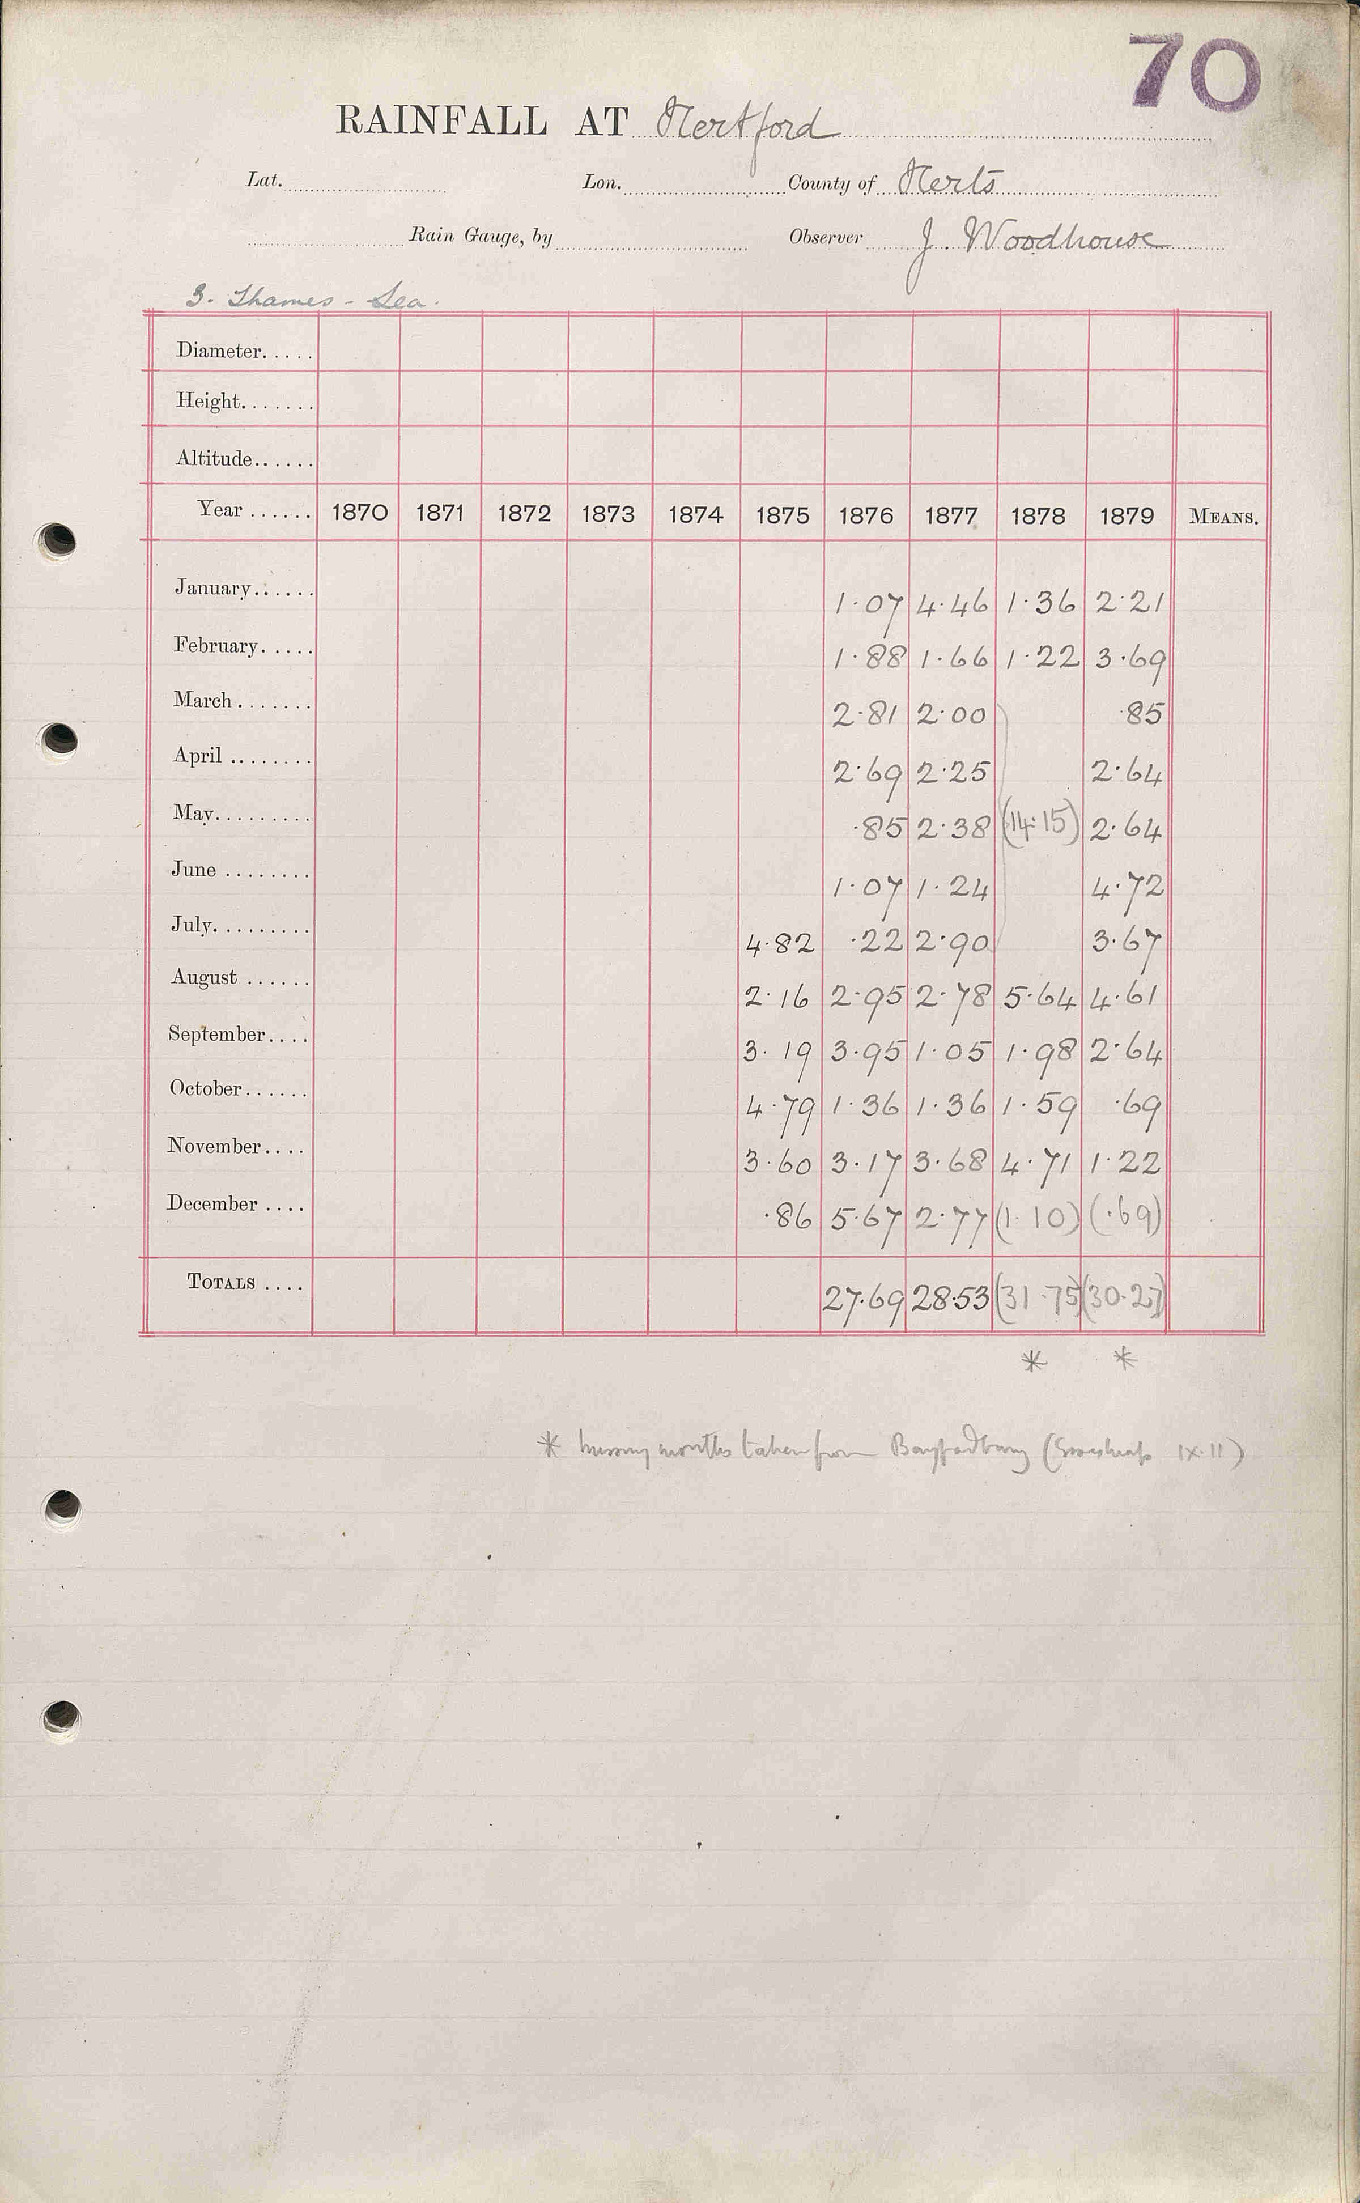 70
RAINFALL AT Hertford
Lat. Lon. County of Herts
Rain Gauge, by Observer J. Woodhouse
3. Thames - Lea.
Diameter.....
Height.......
Altitude......
Year ...... 1870 1871 1872 1873 1874 1875 1876 1877 1878 1879 MEANS.
January...... 1.07 4.46 1.36 2.21
February..... 1.88 1.66 1.22 3.69
March ....... 2.81 2.00 .85
April ........ 2.69 2.25 2.64
May......... .85 2.38 (14.15) 2.64
June ........ 1.07 1.24 4.72
July......... 4.82 .22 2.90 3.67
August ...... 2.16 2.95 2.78 5.64 4.61
September.... 3.19 3.95 1.05 1.98 2.64
October...... 4.79 1.36 1.36 1.59 .69
November.... 3.60 3.17 3.68 4.71 1.22
December .... .86 5.67 2.77 (1.10) (.69)
TOTALS .... 27.69 28.53 (31.75) (30.27)
* *
* missing months taken from Bayfordbury ( IX.11)